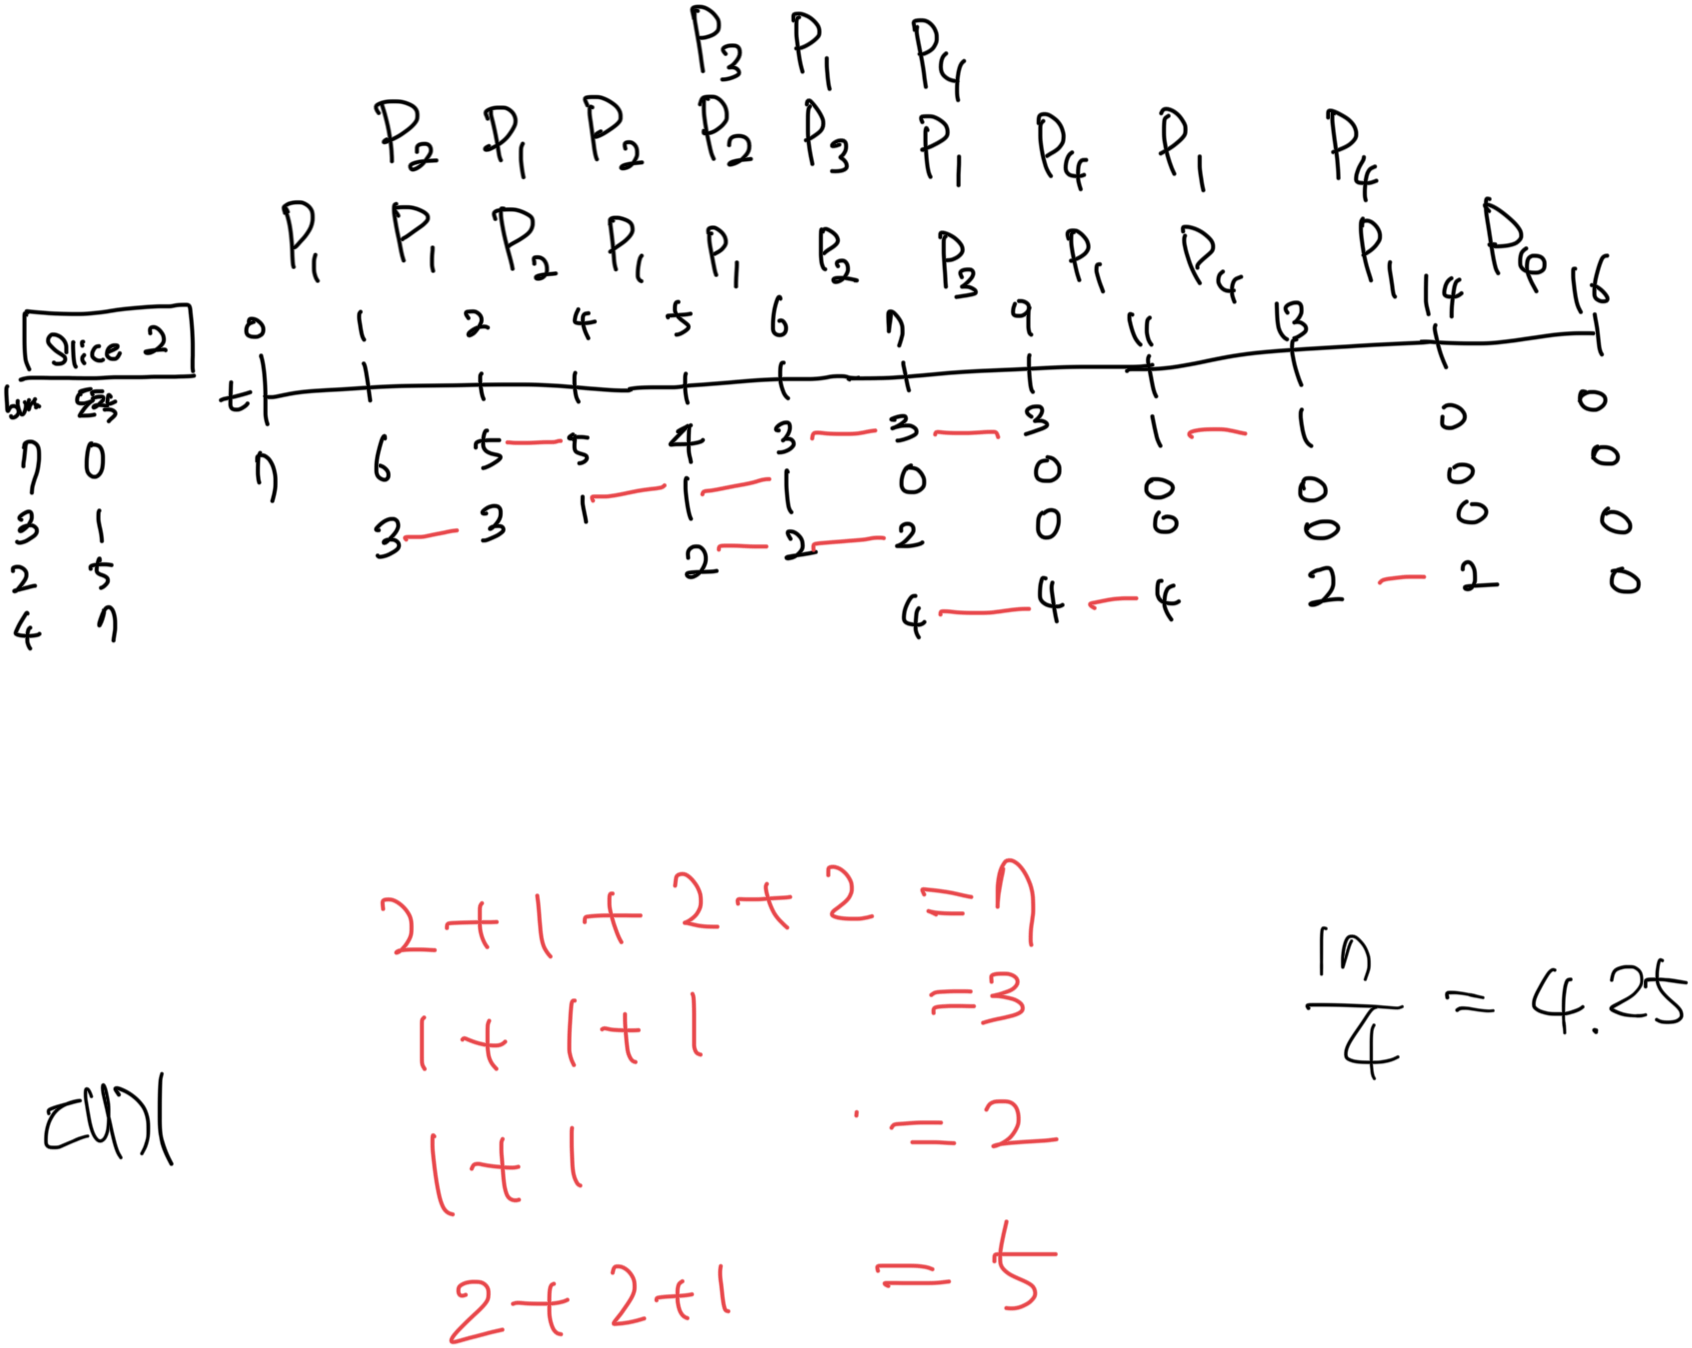 P3 P1 P4
P2 P1 P2 P2 P3 P1 P4 P1 P4
P1 P1 P2 P1 P1 P2 P3 P1 P4 P1 P4
Slice 2
0 1 2 4 5 6 7 9 11 13 14 16
t
7 0
3 1
2 5
4 7
7 6 5 5 4 3 3 3 1 1 0 0
1 1 1 0 0 0 0 0 0
3 3
2 2 2 0 0 0 0 0
4 4 4 2 2 0
2+1+2+2 =7
1+1+1 =3
1+1 =2
2+2+1 =5
17
4
= 4.25